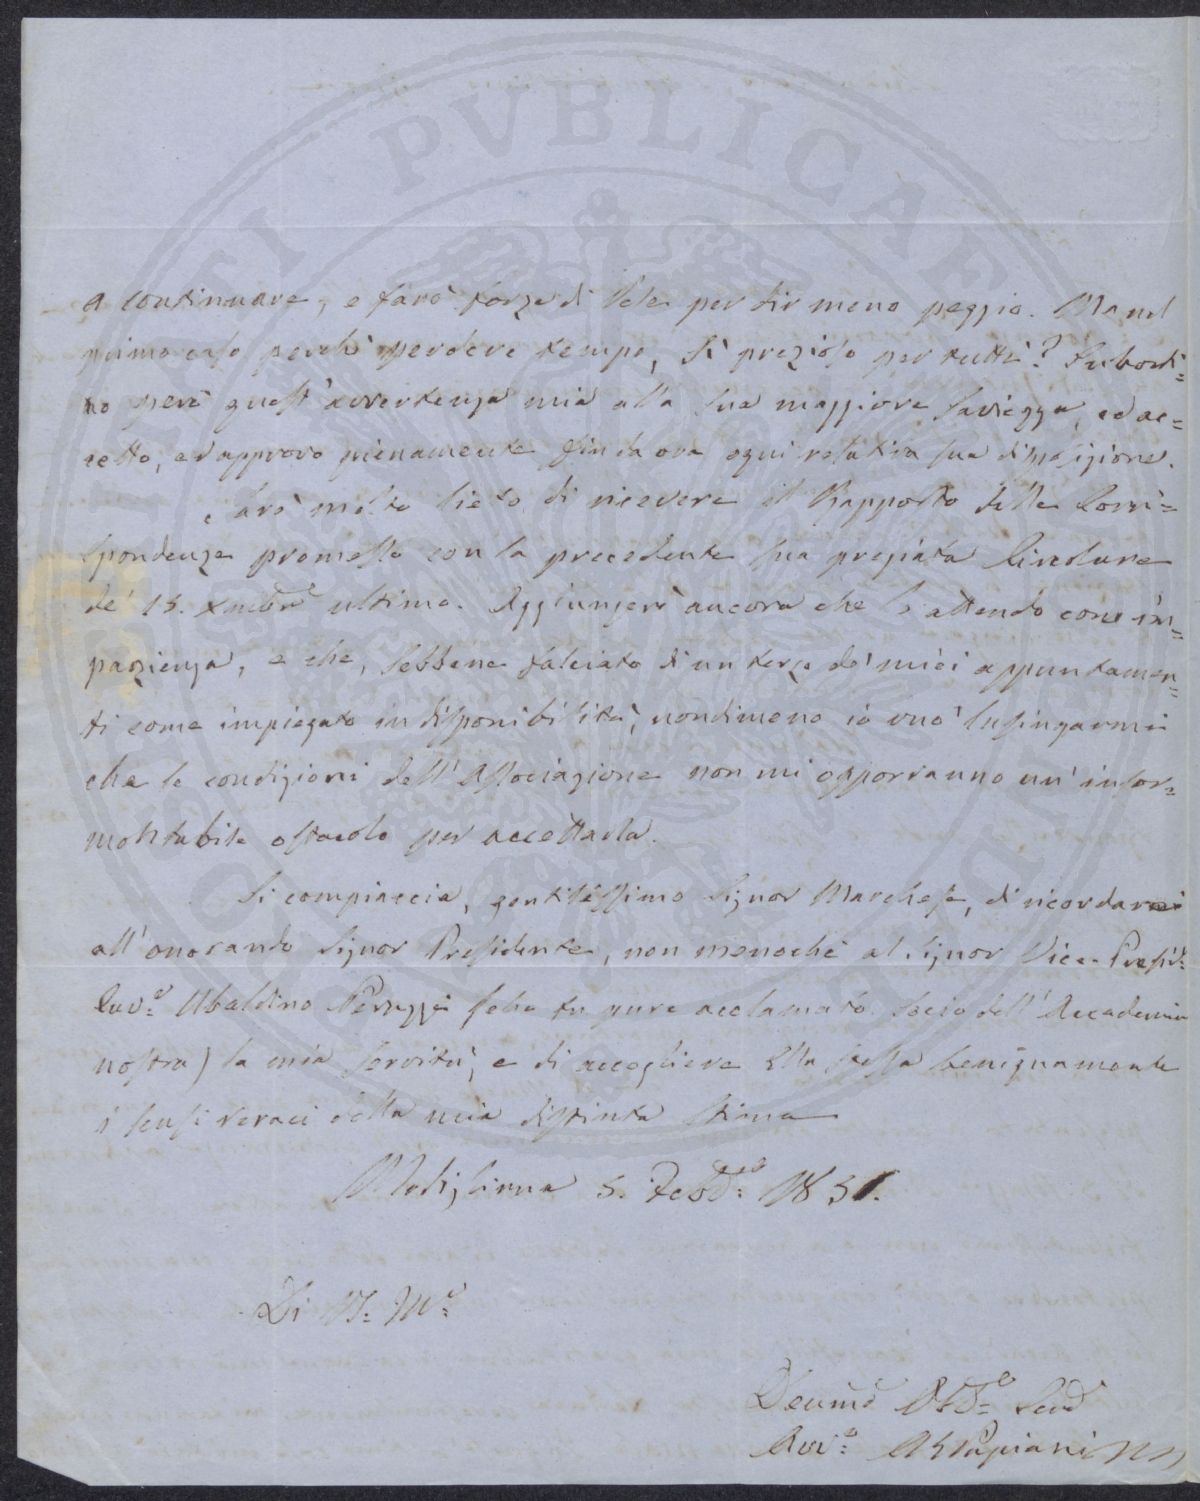 a continuare, e farò forza di vele per dir meno peggio. Ma nel
primo caso perchè perdere tempo, sì prezioso per tutti? Subordi=
no però quest'avvertenza mia alla sua maggiore saviezza, ed ac=
cetto, ed approvo pienamente fin da ora ogni relativa sua disposizione.
Sarò molto lieto di ricevere il Rapporto delle Corri=
spondenze promesso con la precedente sua pregiata Circolare
de' 15. Xmbre ultimo. Aggiungerò ancora che lo attendo con im=
pazienza, e che, sebbene falciato di un terzo de' miei appuntamen=
ti come impiegato in disponibilità, nondimeno io vuo' lusingarmi
che le condizioni dell'Associazione non mi opporranno un' insor=
montabile ostacolo per accettarla.
Si compiaccia, gentilissimo Signor Marchese, di ricordare
all'onorando Signor Presidente, non menochè al Signor Vice-Presid.
Cav.e Ubaldino Peruzzi (che fu pure acclamato Socio dell'Accademia
nostra) la mia servitù, e di accogliere Ella stessa benignamente
i sensi veraci della mia distinta stima
Modigliana 5. Febb.o 1851.
Di V. M.
Devmo Obb.o Serv
Avv.o
PVBLICAE